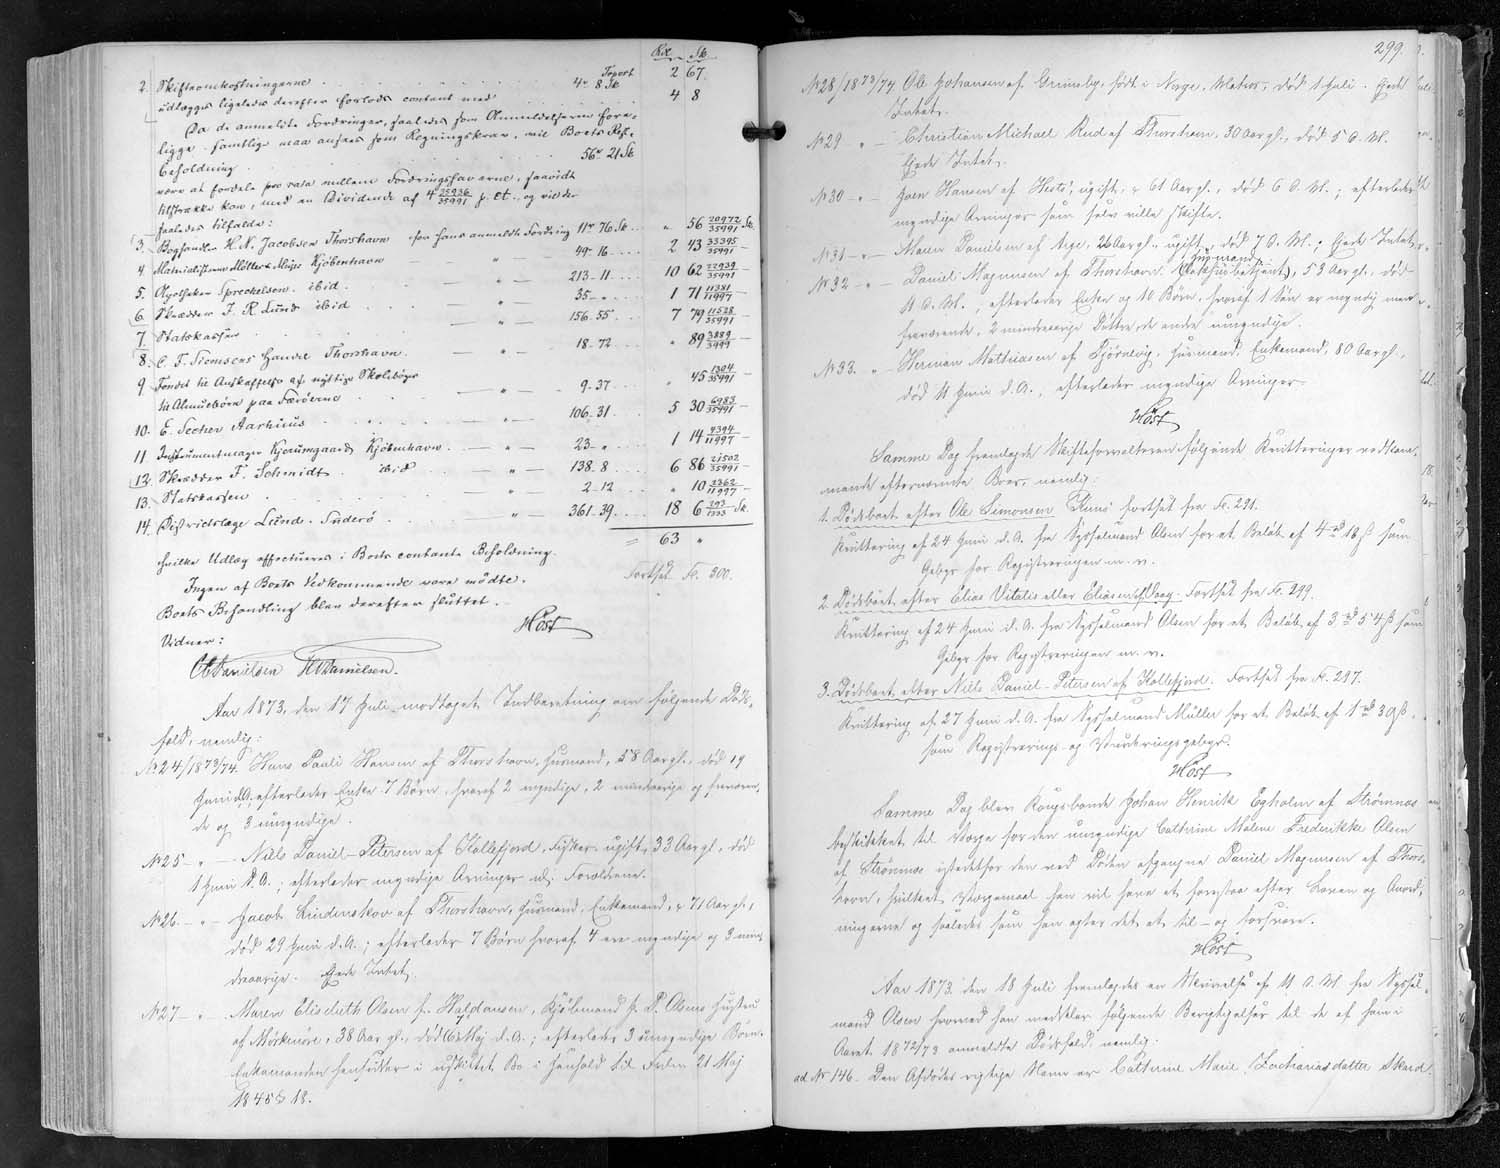 Rd. Sk.
Tsport 2 67.
2. Skifteomkostningerne 4 r 8 Sk
udlægges ligeledes derefter forlods contant med 4 8
Da de anmeldte Fordringer, saaledes som Anmeldelserne fore-
ligge, samtlige maa ansees som Regningskrav, vil Boets Rest-
beholdning 56 r 21 Sk
være at fordele pro rata mellem Fordringshaverne, saavidt
tilstrække kan, med en Dividende af 4 25936/35991 p. Ct., og vil der
saaledes tilfalde:
3. Boghandler H. N. Jacobsen Thorshavn for hans anmeldte Fordring 11 r 76 Sk " 56 20972/35991 Sk.
4 Materialisterne Møller & Meyer Kjöbenhavn — " — 49 - 16 2 43 33395/35991 —
5. Apotheker Spreckelsen ibid. — " — 213 - 11 10 62 22939/35991 —
6. Skrædder F. R. Lund ibid — " — 35 - " 1 71 11381/11997 —
7. Statskassen — " — 156 - 55 7 79 11528/35991 —
8. C. F. Siemsens Handel Thorshavn. — " — 18 - 72 " 89 3889/3999 —
9 Fondet til Anskaffelse af nyttige Skolebøger
til Almuebørn paa Færöerne — " — 9 - 37 " 45 1304/35991 —
10. E. Secher Aarhuus — " — 106 - 31 5 30 6983/35991 —
11 Instrumentmager Kjærumgaard Kjöbenhavn. — " — 23 - " 1 14 4394/11997 —
12. Skrædder F. Schmidt ibid — " — 138 - 8 6 86 21502/35991 —
13. Statskassen — " — 2 - 12 " 10 2362/11997 —
14. Districtslæge Lund. Suderö — " — 361 - 39 18 6 293/1333 Sk.
= 63 "
hvilke Udlæg effectueres i Boets contante Beholdning.
Ingen af Boets Vedkommende vare mödte. Fortsat Fr. 300.
Boets Behandling blev derefter sluttet.
Høst
Vidner:
O. Danielsen H Danielsen.
Aar 1873, den 17 Juli modtoges Indberetning om følgende Døds-
fald, nemlig:
No 24/1873/74. Hans Pauli Hansen af Thorshavn, Husmand, 58 Aar gl., død 19
Juni d. A. efterlader Enke 7 Børn, hvoraf 2 myndige, 2 mindreårige og fraværen-
de og 3 umyndige.
No 25 - " - Niels Daniel Petersen af Kollefjord, Fisker, ugift, 33 Aar gl., død
1 Juni d. A.; efterlader myndige Arvinger nl. Forældrene.
No 26. - " - Jacob Lindenskov af Thorshavn, Husmand, Enkemand, 71 Aar gl.,
død 29 Juni d. A.; efterlader 7 Børn hvoraf 4 ere myndige og 3 min-
dreaarige. Ejede Intet.
No 27 - " - Maren Elisabeth Olsen f. Haldansen, Kjøbmand J. P. Olsens Hustru
af Mørkenøre, 38 Aar gl., død 16 Maj d. A.; efterlader 3 umyndige Børn.
Enkemanden hensidder i uskiftet Bo i Henhold til Frdn 21 Maj
1845 § 18.
299.
No 28/1873/74 Ole Johansen af Grimsby, født i Norge, Matros, død 1 Juli. Ejede
Intet.
No 29 - " - Christian Michael Rud af Thorshavn, 30 Aar gl., død 5 d. M.
Ejede Intet.
No 30 - " - Joen Hansen af Hestø, ugift, 61 Aar gl., død 6 d. M.; efterlader
myndige Arvinger som selv ville skifte.
No 31 - " - Maren Danielsen af Arge, 26 Aar gl. ugift, død 7 d. M.; Ejede Intet.
No 32 - " - Daniel Magnusen af Thorshavn, Husmand (Pakhuusbetjent), 53 Aar gl., død
11 d. M.; efterlader Enke og 10 Børn, hvoraf 1 Søn er myndig men
fraværende, 2 mindreaarige Døttre, de andre umyndige.
No 33. " - Herman Mathiasen af Tjörnevig, Husmand, Enkemand, 80 Aar gl.,
død 11 Juni d. A., efterlader myndige Arvinger.
Høst
Samme Dag fremlagde Skifteforvalteren følgende Kvitteringer vedkom-
mende efternævnte Boer, nemlig:
1. Dødsboet efter Ole Simonsen Fuus fortsat fra Fr. 291.
Kvittering af 24 Juni d. A. fra Sysselmand Olsen for et Beløb af 4 rd 18 ß som
Gebyr for Registreringen m. v.
2. Dødsboet efter Elias Vitalis eller Eliasen af Saxen. Fortsat fra Fr. 299.
Kvittering af 24 Juni d. A. fra Sysselmand Olsen for et Beløb af 3 rd 54 ß som
Gebyr for Registreringen m. v.
3. Dødsboet efter Niels Daniel Petersen af Kollefjord. Fortsat fra Fr. 297.
Kvittering af 27 Juni d. A. fra Sysselmand Müller for et Beløb af 1 rd 39 ß
som Registrerings- og Vurderingsgebyr.
Høst
Samme Dag blev Kongsbonde Johan Henrik Egholm af Strømnæs
beskikket til Værge for den umyndige Cathrine Malene Frederikke Olsen
af Strømnæs istedetfor den ved Døden afgangne Daniel Magnusen af Thors-
havn, hvilket Værgemaal han vil have at forestaae efter Loven og Anord-
ningerne og saaledes som han agter det at til- og forsvare.
Høst
Aar 1873 den 18 Juli fremlagdes en Skrivelse af 11 d. M. fra Syssel-
mand Olsen hvormed han meddeler følgende Berigtigelser til de af ham i
Aaret 1872/73 anmeldte Dødsfald, nemlig:
ad No 146. Den Afdødes rigtige Navn er Cathrine Marie Zachariasdatter Skaard.